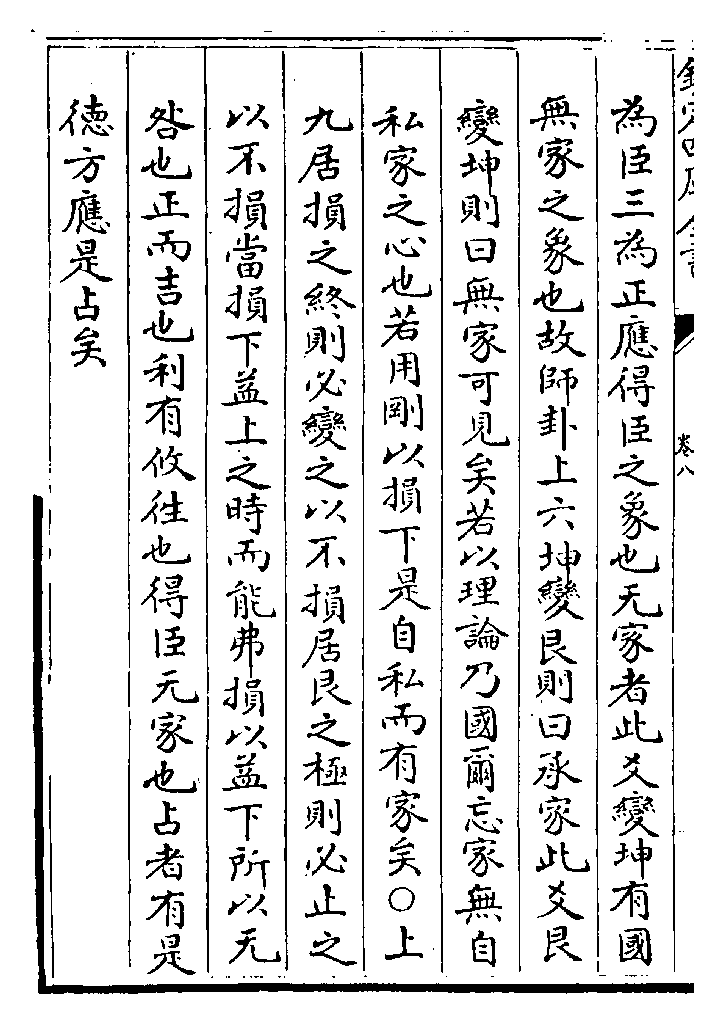 欽定四庫全書
卷八
為臣三為正應得臣之象也无家者此爻變坤有國
無家之象也故師卦上六坤變艮則曰承家此爻艮
變坤則曰無家可見矣若以理論乃國爾忘家無自
私家之心也若用剛以損下是自私而有家矣○上
九居損之終則必變之以不損居艮之極則必止之
以不損當損下益上之時而能弗損以益下所以无
咎也正而吉也利有攸往也得臣无家也占者有是
德方應是占矣